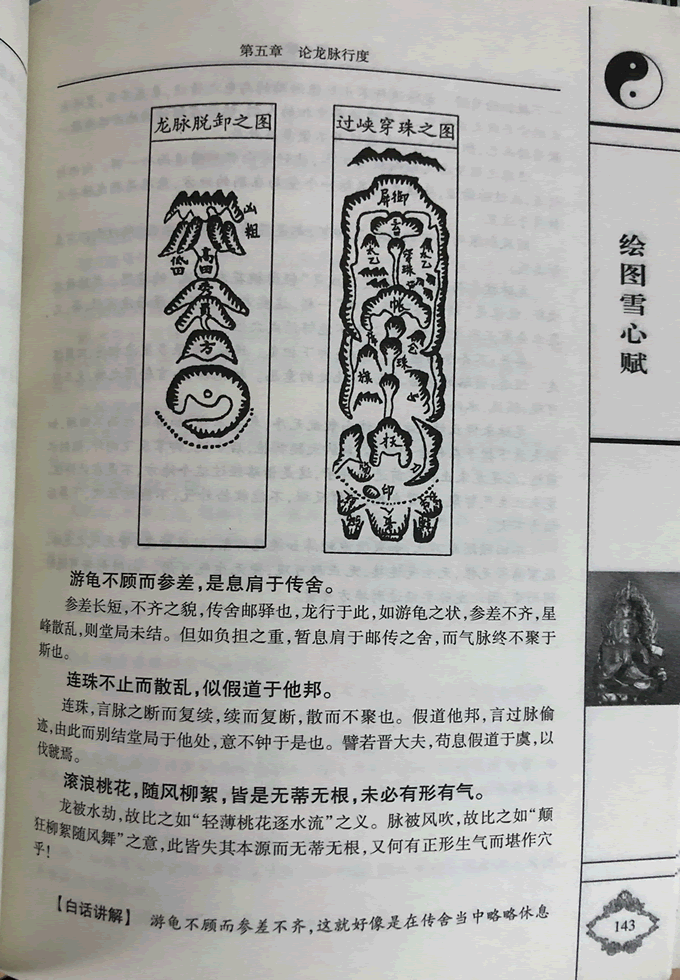 第五章 论龙脉行度
龙脉脱卸之图
过峡穿珠之图
屏御
帐
珠
旗
印
低田
高田
粗
方
绘图雪心赋
游龟不顾而参差，是息肩于传舍。
参差长短，不齐之貌，传舍邮驿也，龙行于此，如游龟之状，参差不齐，星
峰散乱，则堂局未结。但如负担之重，暂息肩于邮传之舍，而气脉终不聚于
斯也。
连珠不止而散乱，似假道于他邦。
连珠，言脉之断而复续，续而复断，散而不聚也。假道他邦，言过脉偷
迹，由此而别结堂局于他处，意不钟于是也。譬若晋大夫，荀息假道于虞，以
伐虢焉。
滚浪桃花，随风柳絮，皆是无蒂无根，未必有形有气。
龙被水劫，故比之如“轻薄桃花逐水流”之义。脉被风吹，故比之如“颠
狂柳絮随风舞”之意，此皆失其本源而无蒂无根，又何有正形生气而堪作穴
乎！
【白话讲解】 游龟不顾而参差不齐，这就好像是在传舍当中略略休息
143